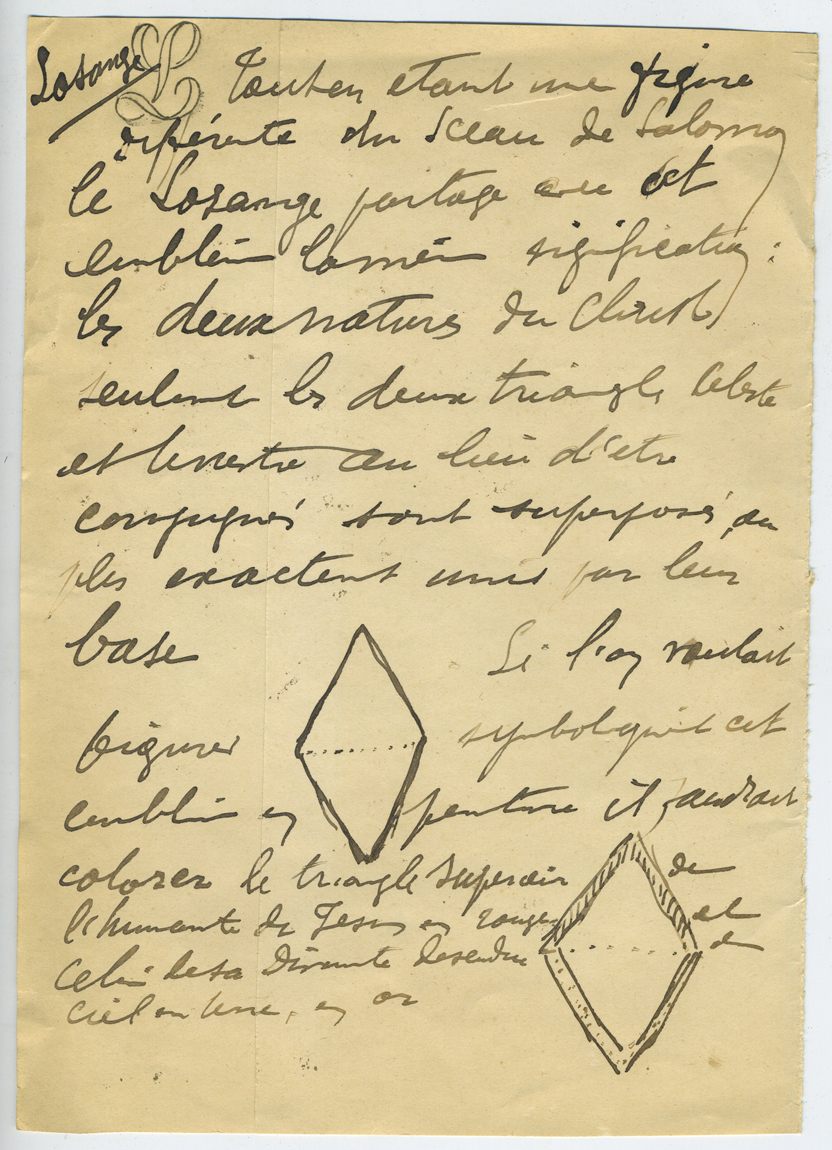 Losange
L Tout en etant une figure
différente du Sceau de Salomon
le Losange partage avec cet
emblème la même signification :
les deux natures du Christ
seulement les deux triangles Celeste
et terrestre au lieu d'etre
conjugués sont superposés, ou
plus exactement unis par leur
base Si l'on voulait
figurer symboliquement cet
emblème en peinture il faudrait
colorer le triangle superieur de
l'humanite de Jesus en rouge et
celui de sa Divinite descendue de
ciel en terre, en or